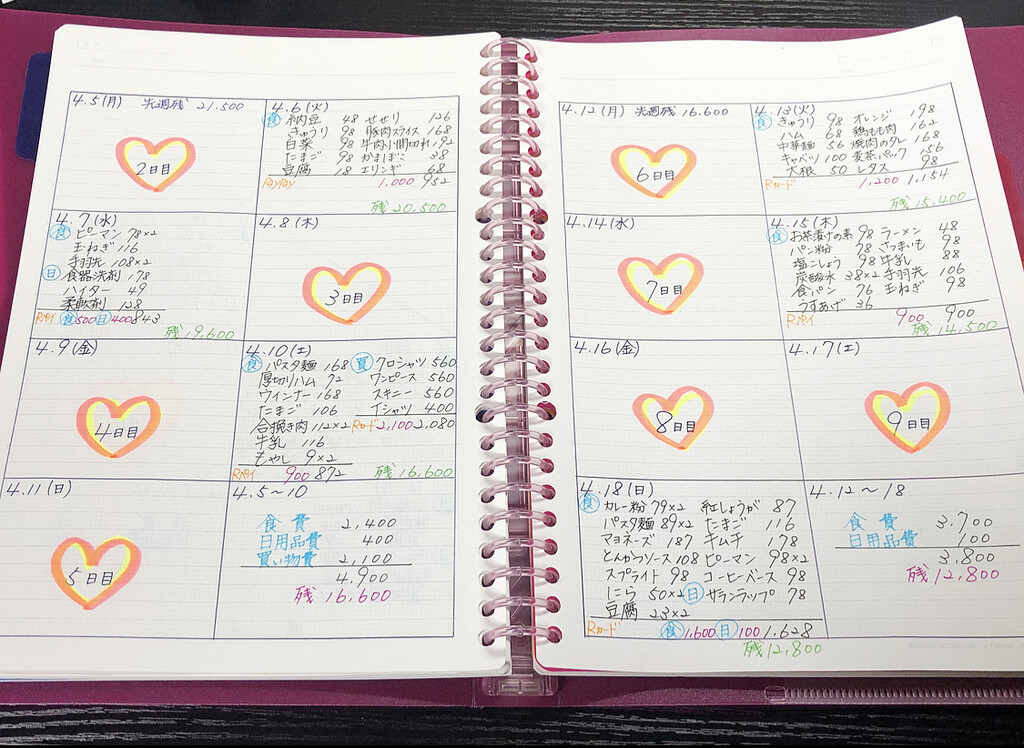 4.5(月) 先週残 21,500
2日目
4.6(火)
食 納豆 48 せせり 126
きゅうり 98 豚肉スライス 168
白菜 98 牛肉小間切れ 192
たまご 98 かまぼこ 38
豆腐 18 エリンギ 68
PayPay 1,000 952
残 20,500
4.7(水)
食 ピーマン 78×2
玉ねぎ 116
手羽先 108×2
日 食器洗剤 178
ハイター 49
柔軟剤 128
Rペイ 食500 日400 843
残 19,600
4.8(木)
3日目
4.9(金)
4日目
4.10(土)
食 パスタ麺 168 買 クロシャツ 560
厚切りハム 72 ワンピース 560
ウインナー 168 スキニー 560
たまご 106 Tシャツ 400
合挽き肉 112×2 Rカード 2,100 2,080
牛乳 116
もやし 9×2
Rペイ 900 872 残 16,600
4.11(日)
5日目
4.5~10
食費 2,400
日用品費 400
買い物費 2,100
4,900
残 16,600
4.12(月) 先週残 16,600
6日目
4.13(火)
食 きゅうり 98 オレンジ 198
ハム 68 鶏もも肉 162
中華麺 56 焼肉のタレ 168
キャベツ 100 麦茶パック 156
大根 50 レタス 98
Rカード 1,200 1,154
残 15,400
4.14(水)
7日目
4.15(木)
食 お茶漬けの素 98 ラーメン 48
パン粉 78 さつまいも 98
塩こしょう 98 牛乳 88
炭酸水 38×2 手羽先 106
食パン 76 玉ねぎ 98
うすあげ 36
Rペイ 900 900
残 14,500
4.16(金)
8日目
4.17(土)
9日目
4.18(日)
食 カレー粉 79×2 紅しょうが 87
パスタ麺 89×2 たまご 116
マヨネーズ 187 キムチ 178
とんかつソース 108 ピーマン 98×2
スプライト 98 コーヒーベース 98
にら 50×2 日 サランラップ 78
豆腐 23×2
Rカード 食1,600 日100 1,628
残 12,800
4.12~18
食費 3,700
日用品費 100
3,800
残 12,800